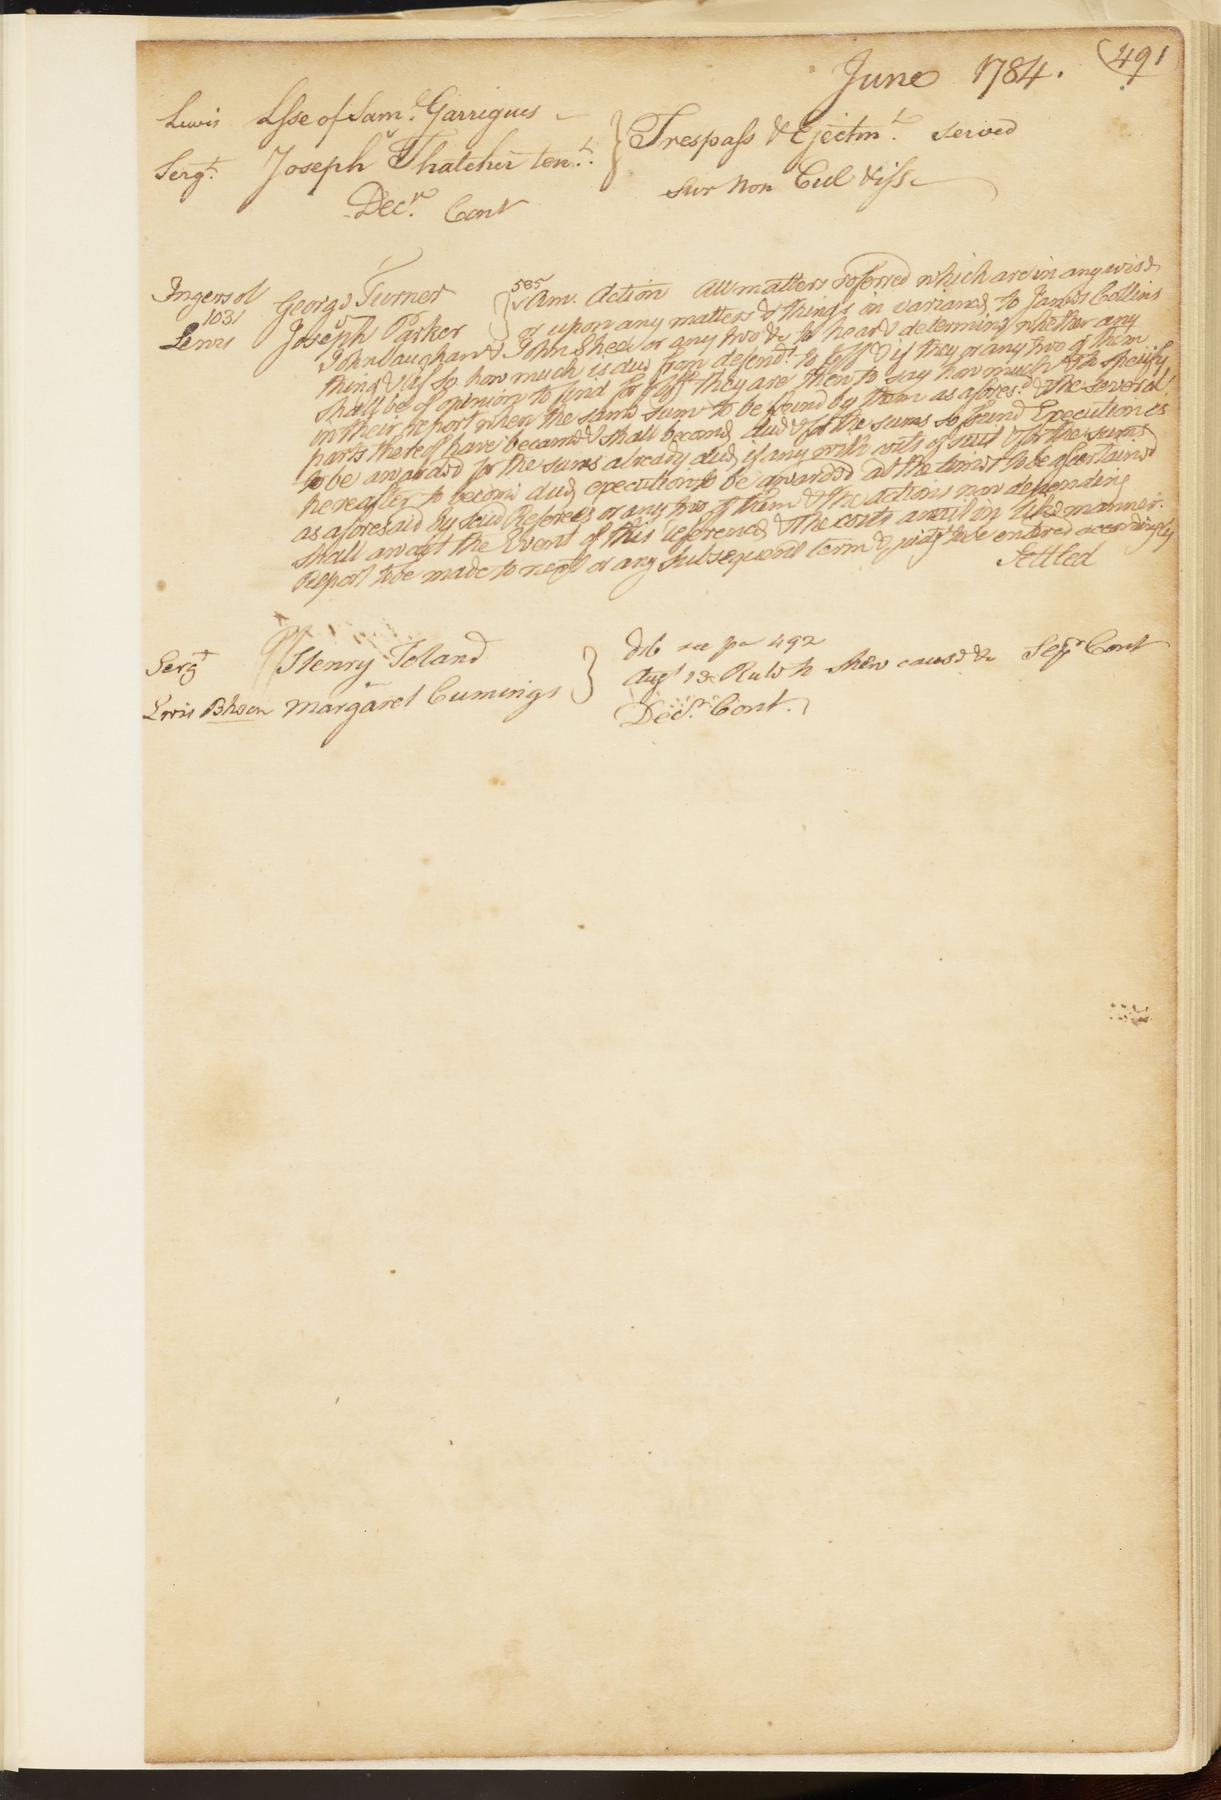 June 1784. (491
Lewis Lsse of Sam.l Garrigues } Trespass & Ejectm.t served
Serg.t Joseph Thatcher ten.t sur Non Cul & iss
Dec.r Cont
Ingersol George Turner } 585 Am. Action All matters referred which are in any wise
1031
Lewis Joseph Parker or upon any matters & things in variance, to James Collins
John Vaughan & John Shee or any two &c to hear & determine whether any
thing & if so how much is due from defend.t to Plff & if they or any two of them
shall be of opinion to find for Plff they are then to say how much & to specify
in their report when the same sum to be found by them as afores.d & the several
parts thereof have became & shall become due & for the sums so found Execution is
to be awarded for the sums already due, if any with costs of suit & for the sums
hereafter to become due, execution to be awarded at the times to be ascertained
as aforesaid by said Referees or any two of them & the actions now depending
shall await the Event of this reference & the costs await in like manner.
Report to be made to next or any subsequent term & judg.t to be entered accordingly
Settled
Serg.t Henry Toland } see pa 492
Lewis Margaret Cumings Aug.t 13 Rule to shew cause &c Sep.r Cont
Dec.r Cont.